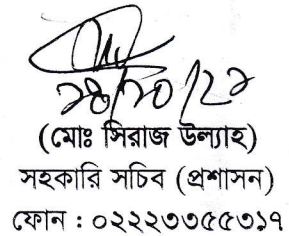 (মোঃ সিরাজ উল্যাহ)
সহকারি সচিব (প্রশাসন)
ফোন : ০২২২৩৩৫৫৩১৭